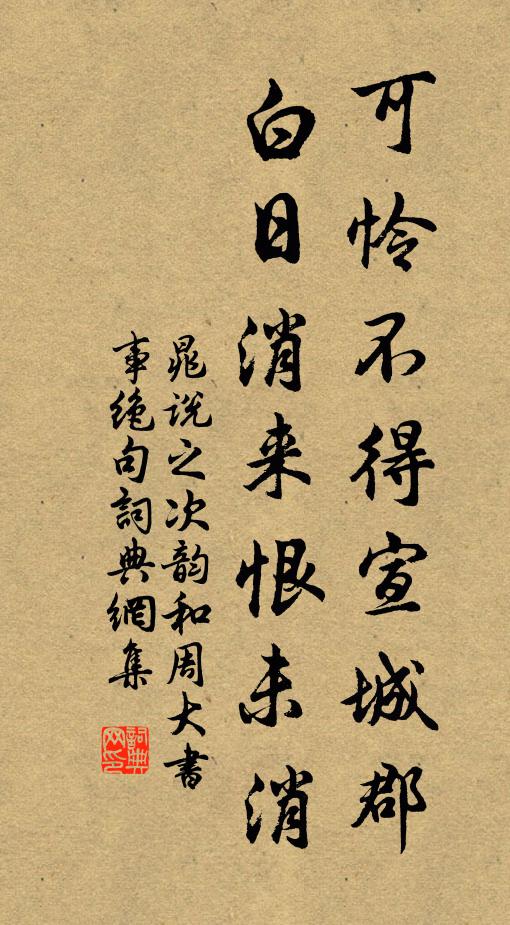 可怜不得宣城郡
白日消来恨未消
晁说之次韵和周大书
事绝句詞典網集
詞典网印